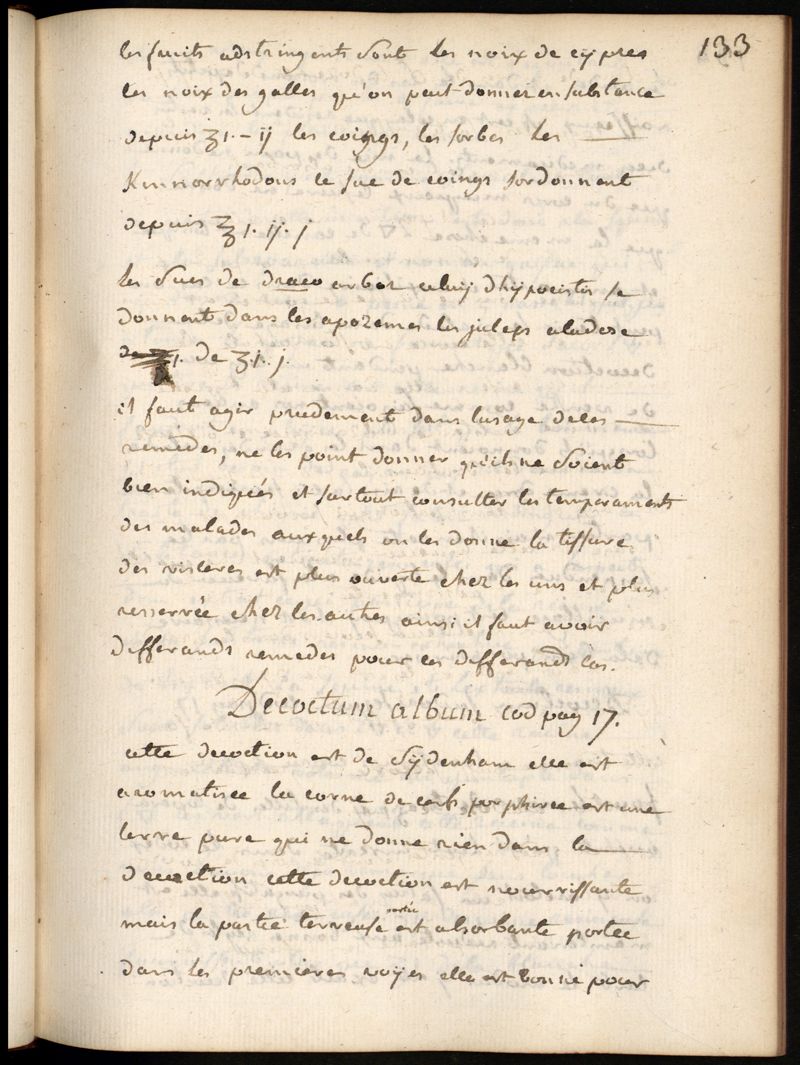 133
les fruits adstringents sont les noix de cypres
les noix des galles qu'on peut donner en substance
depuis ʒ1. - ij les coings, les sorbes les
Kinnorrhodons le suc de coings s'ordonnent
depuis ℥1. ij. j
les sucs de draco arbor celuy d'hypocistis se
donnent dans les apozemes les juleps a la dose
de ʒ1. de ʒ.1.. j.
il faut agir prudement dans lusage de ces
remedes, ne les point donner qu'ils ne soient
bien indiqués et surtout consulter les temperaments
des malades auxquels on les donne la tissure
des visceres est plus ouverte chez les uns et plus
resserrée chez les autres ainsi il faut avoir
differands remedes pour ces differands cas.
Decoctum album cod pag 17.
cette decoction est de Sydenham elle est
aromatisee la corne de cerf porphiree est une
terre pure qui ne donne rien dans la
decoction cette decoction est nourrissante
mais la partie terreuse est absorbante portee
dans les premieres voyes elle est bonne pour